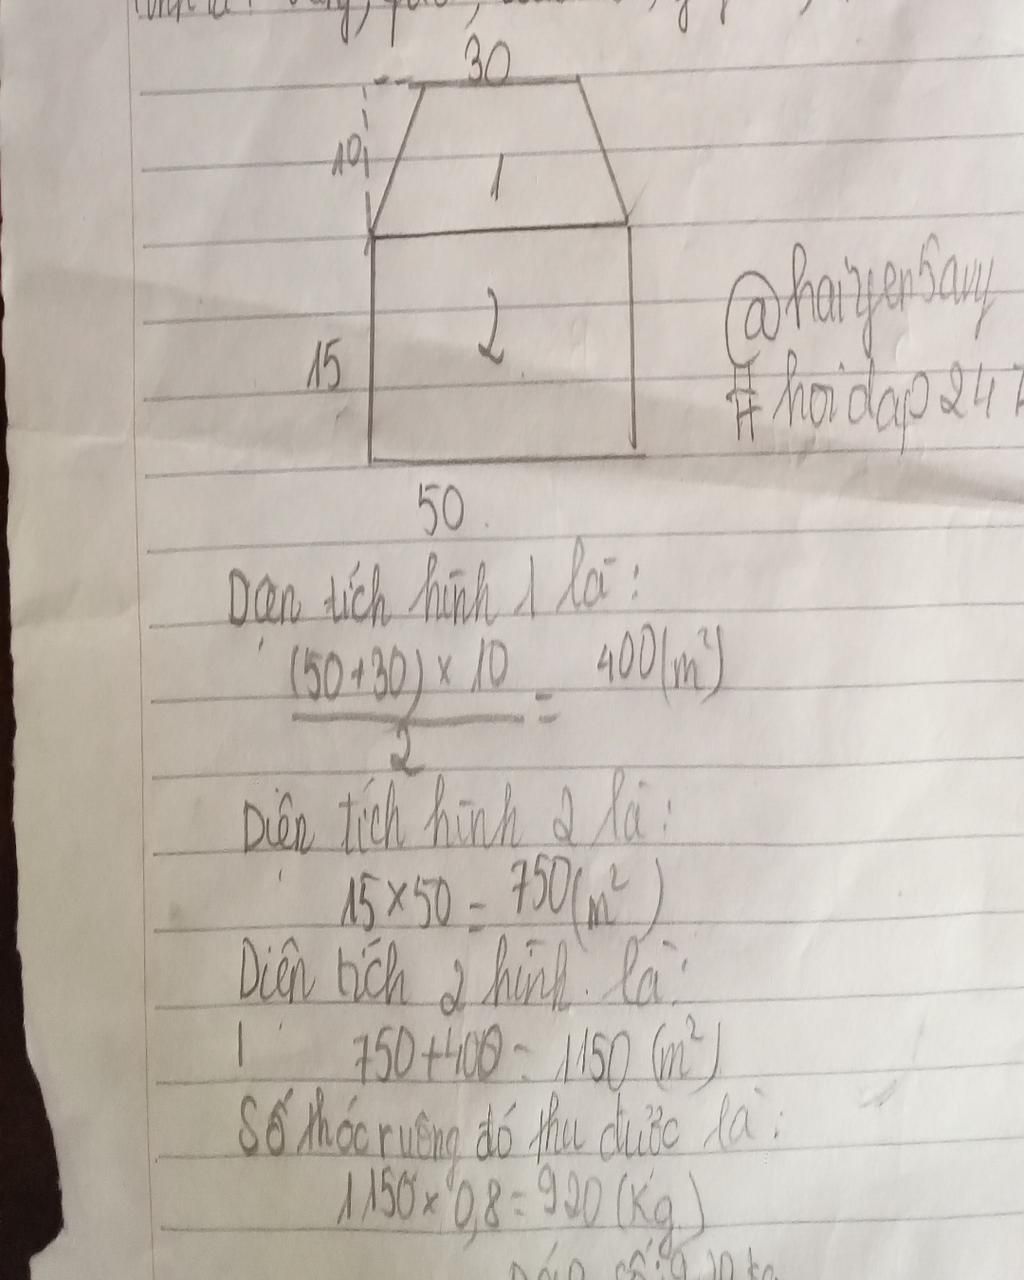 30
10
1
2
15
@haiyen5avy
#hoidap247
50
Diện tích hình 1 là:
(50+30) × 10
2
= 400(m²)
Diện tích hình 2 là:
15×50 = 750(m²)
Diện tích 2 hình là:
750+400 = 1150 (m²)
Số thóc ruộng đó thu được là:
1150 × 0,8 = 920 (kg)
Đáp số: 920 kg